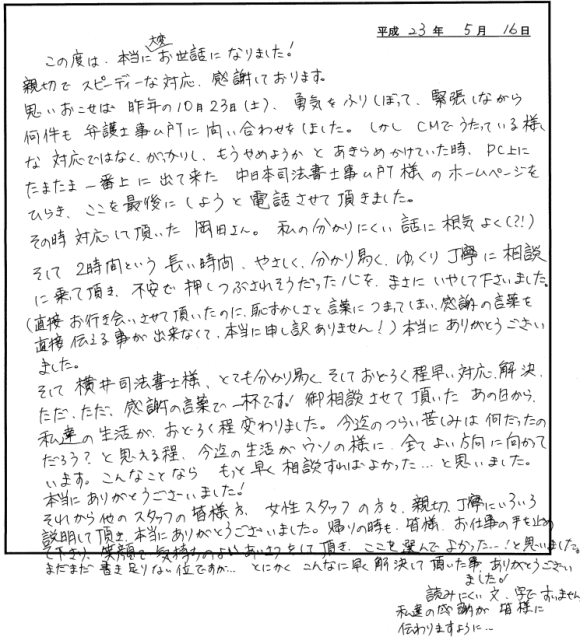 平成 23年 5月 16日
この度は、本当に大変お世話になりました!
親切でスピーディーな対応、感謝しております。
思いおこせば昨年の10月23日(土)、勇気をふりしぼって、緊張しながら
何件も弁護士事ム所に問い合わせをしました。しかしCMでうたっている様
な対応ではなく、がっかりし、もうやめようかとあきらめかけていた時、PC上に
たまたま一番上に出て来た 中日本司法書士事ム所様のホームページを
ひらき、ここを最後にしようと電話させて頂きました。
その時対応して頂いた岡田さん。私の分かりにくい話に根気よく(?!)
そして2時間という長い時間、やさしく、分かり易く、ゆっくり丁寧に相談
に乗て頂き、不安で押しつぶされそうだった心を、まさにいやして下さいました。
(直接お行き会いさせて頂いたのに、恥ずかしさと言葉につまってしまい、感謝の言葉を
直接伝える事が出来なくて、本当に申し訳ありません!)本当にありがとうござい
ました。
そして横井司法書士様、とても分かり易く、そしておどろく程早い対応、解決、
ただ、ただ、感謝の言葉で一杯です!御相談させて頂いたあの日から、
私達の生活が、おどろく程変わりました。今迄のつらい苦しみは何だったの
だろう?と思える程、今迄の生活がウソの様に、全てよい方向に向かて
います。こんなことなら もっと早く相談すればよかった…と思いました。
本当にありがとうございました!
それから他のスタッフの皆様方、女性スタッフの方々、親切、丁寧にいろいろ
説明して頂き、本当にありがとうございました。帰りの時も、皆様、お仕事の手を止め
て下さり、笑顔で気持ちのよいあいさつをして頂き、ここを選んでよかった…!と思いました。
まだまだ書き足りない位ですが…とにかくこんなに早く解決して頂いた事、ありがとうござい
ました!
読みにくい文、字ですいません
私達の感謝が皆様に
伝わりますように…